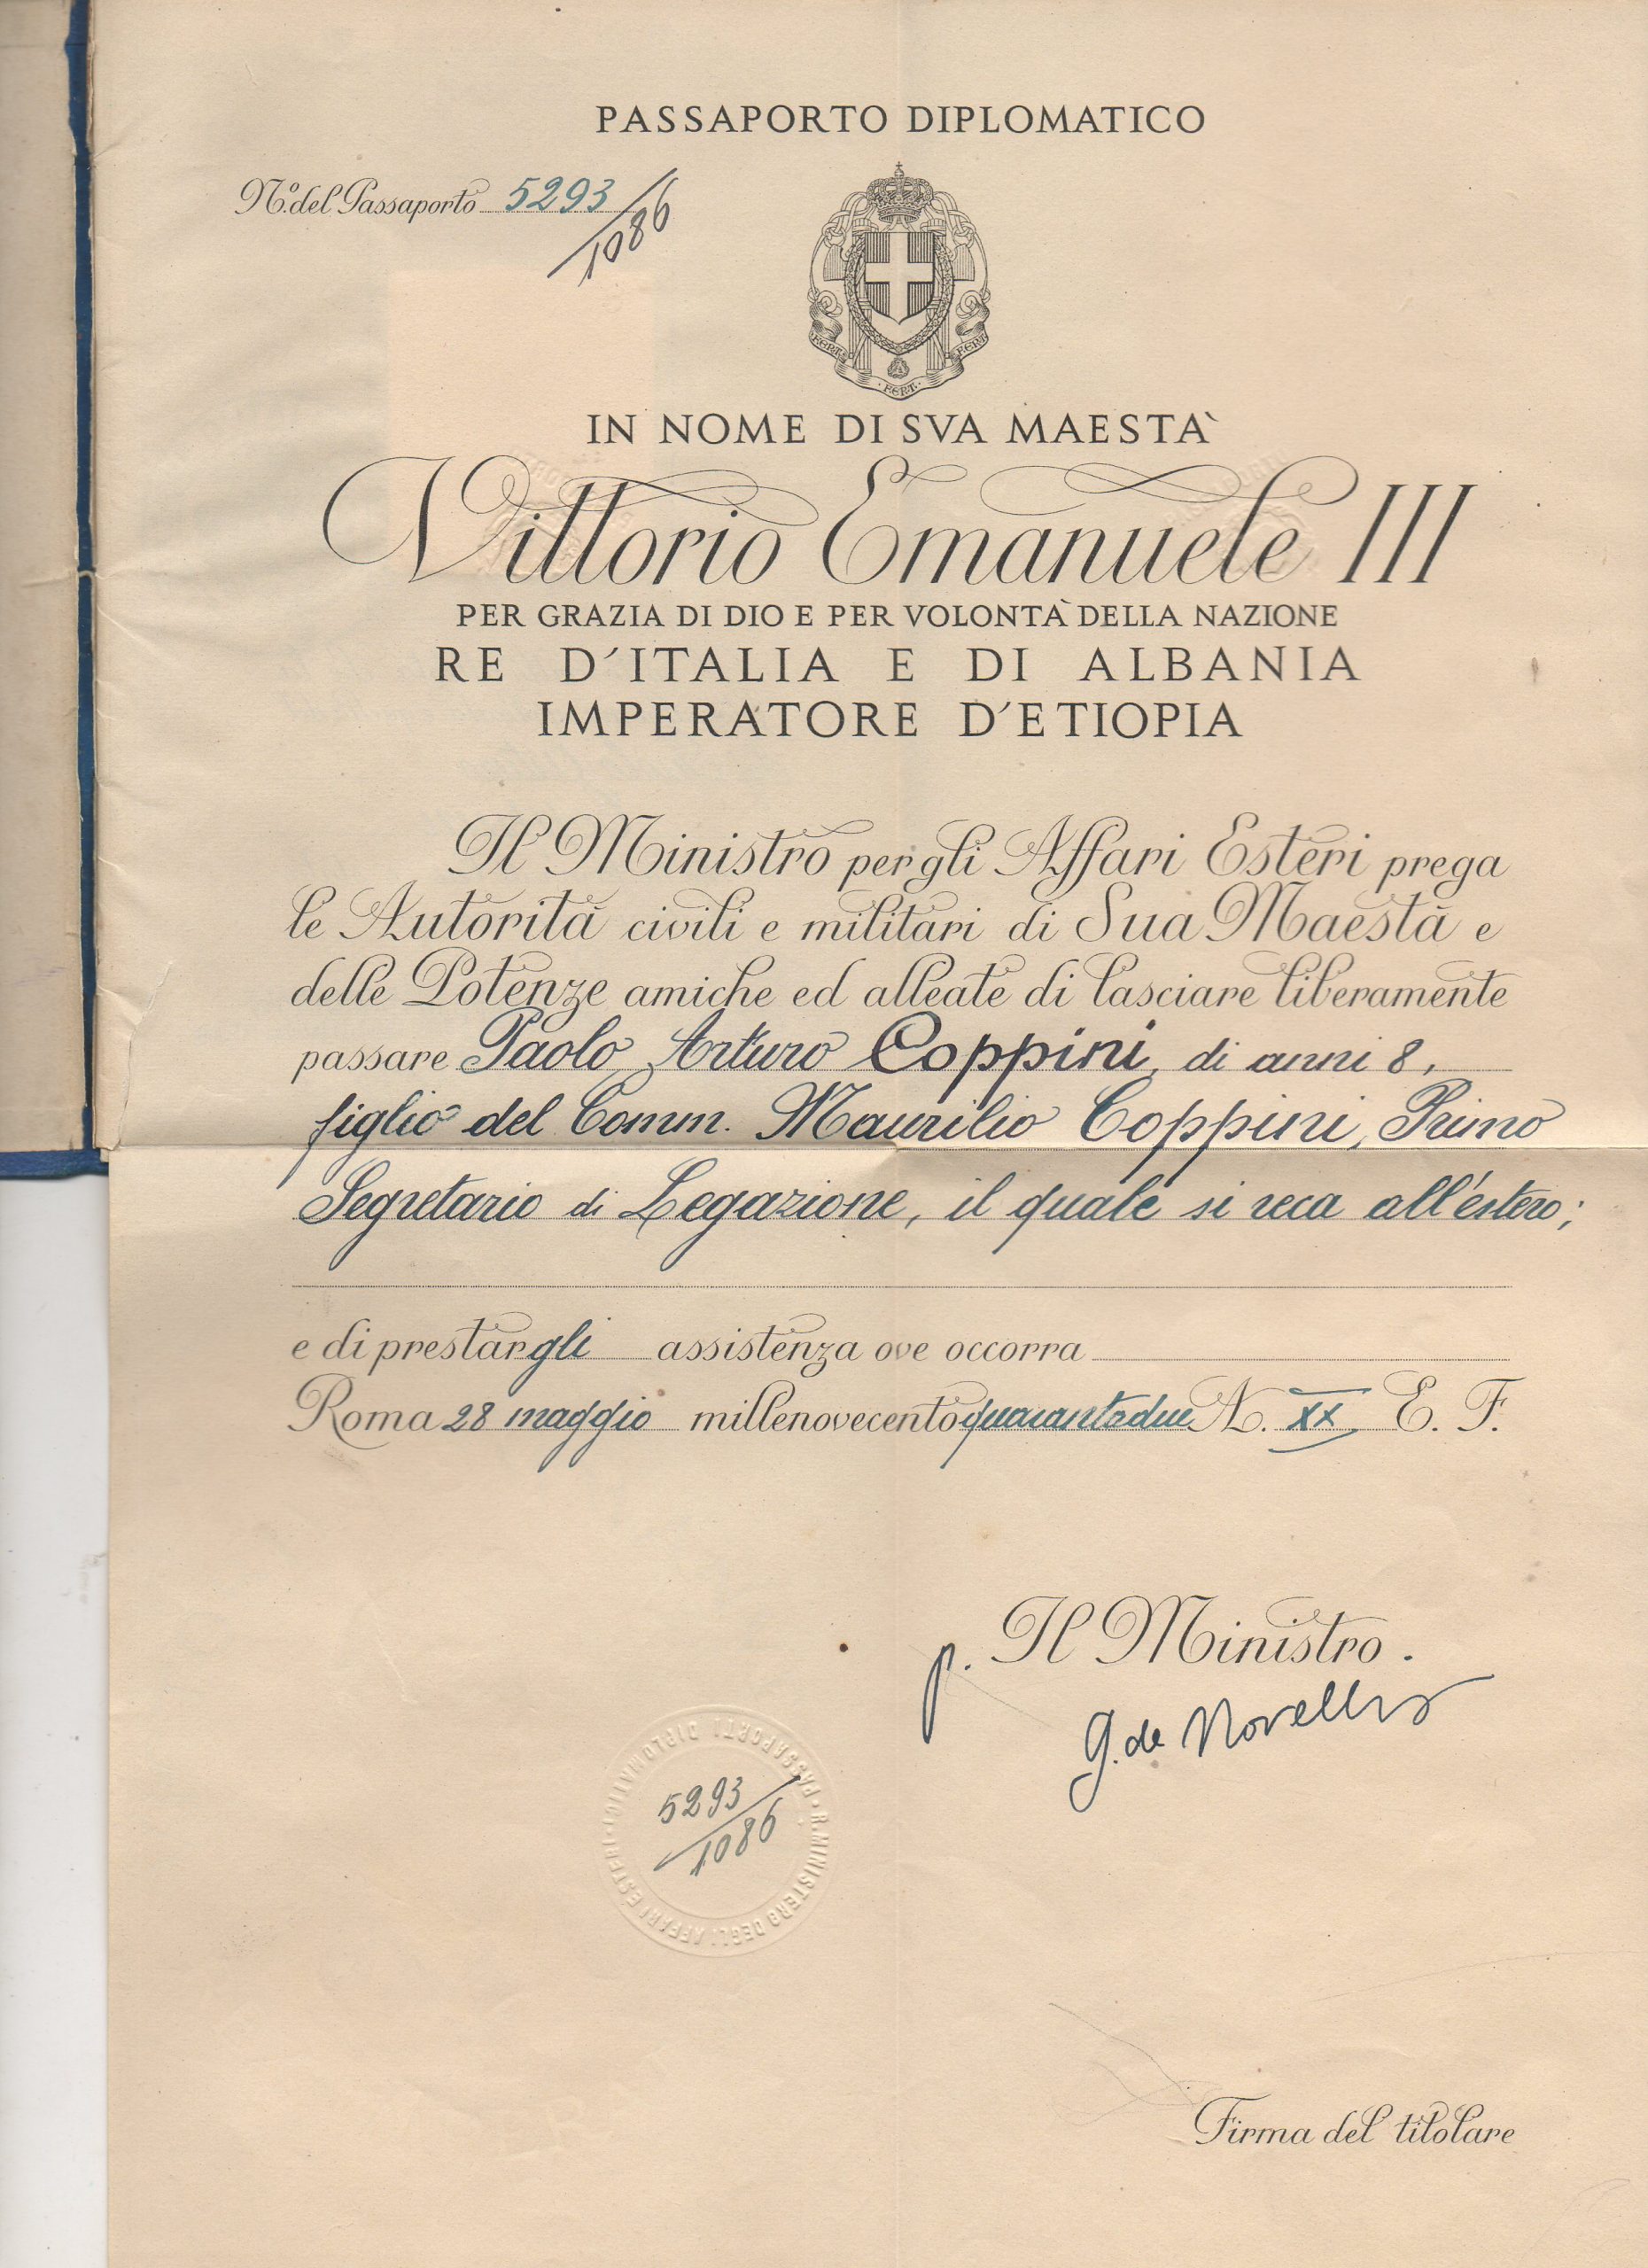 PASSAPORTO DIPLOMATICO
N.º del Passaporto 5293/1086
FERT FERT FERT
IN NOME DI SVA MAESTA`
Vittorio Emanuele III
PER GRAZIA DI DIO E PER VOLONTA` DELLA NAZIONE
RE D'ITALIA E DI ALBANIA
IMPERATORE D'ETIOPIA
Il Ministro per gli Affari Esteri prega
le Autorità civili e militari di Sua Maestà e
delle Potenze amiche ed alleate di lasciare liberamente
passare Paolo Arturo Coppini, di anni 8,
figlio del Comm. Maurilio Coppini, Primo
Segretario di Legazione, il quale si reca all'estero;
e di prestargli assistenza ove occorra
Roma 28 maggio millenovecentoquarantadue A. XX E. F.
p. Il Ministro.
G. de Novellis
R. MINISTERO DEGLI AFFARI ESTERI · PASSAPORTI DIPLOMATICI ·
5293/1086
Firma del titolare